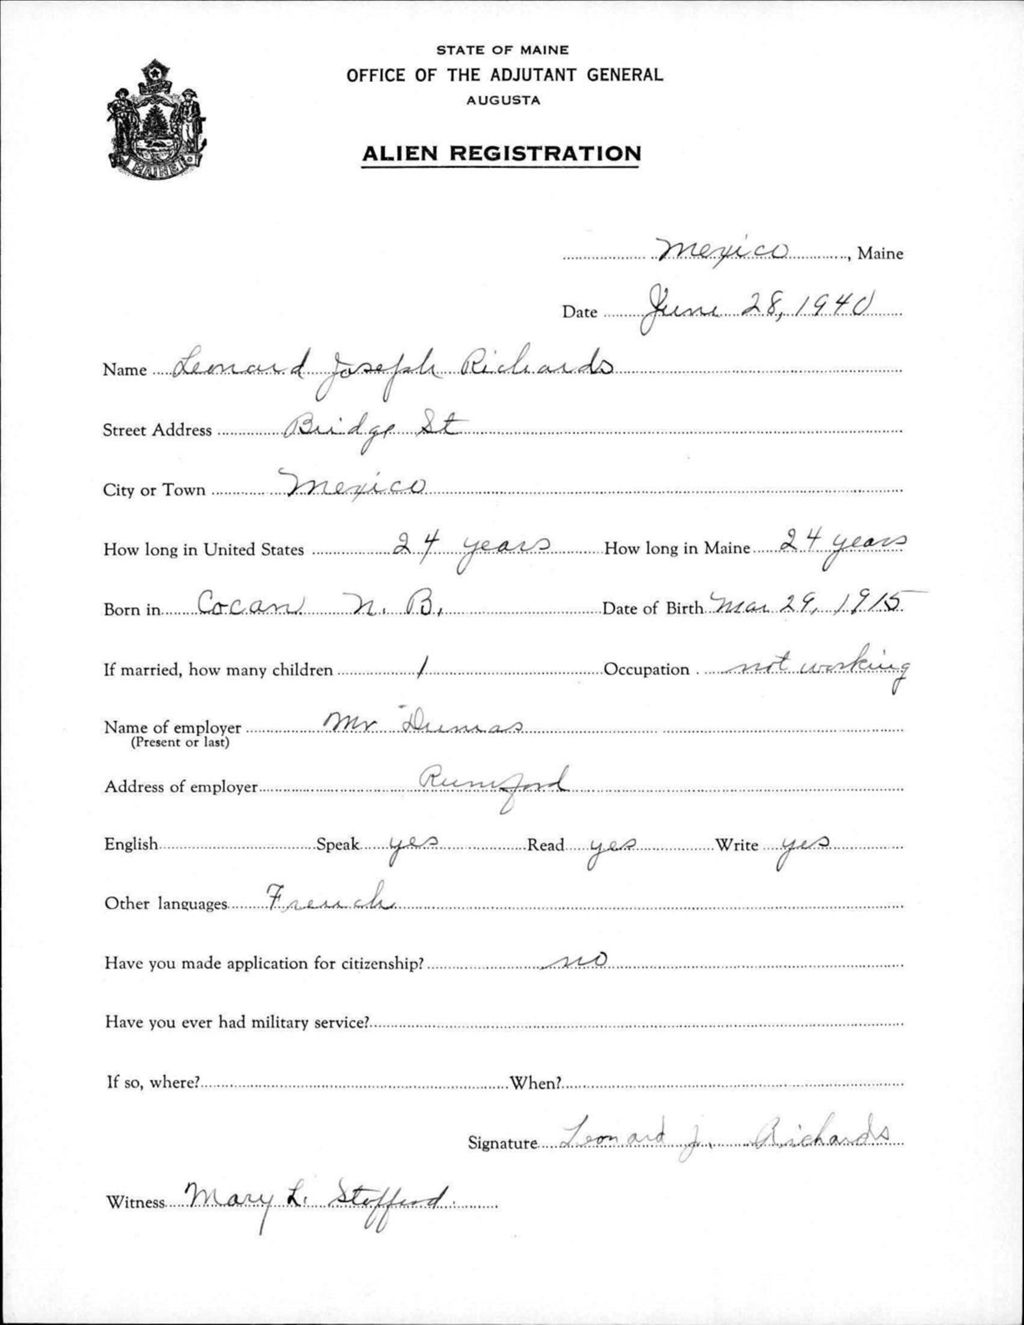 STATE OF MAINE
OFFICE OF THE ADJUTANT GENERAL
AUGUSTA
ALIEN REGISTRATION
MAINE
Mexico, Maine
Date June 28, 1940
Name Leonard Joseph Richards
Street Address Bridge St
City or Town Mexico
How long in United States 24 years How long in Maine 24 years
Born in Cocan N. B. Date of Birth Mar 29, 1915
If married, how many children 1 Occupation not working
Name of employer Mr Dumas
(Present or last)
Address of employer Rumford
English Speak yes Read yes Write yes
Other languages French
Have you made application for citizenship? no
Have you ever had military service?
If so, where? When?
Signature Leonard J. Richards
Witness Mary L.